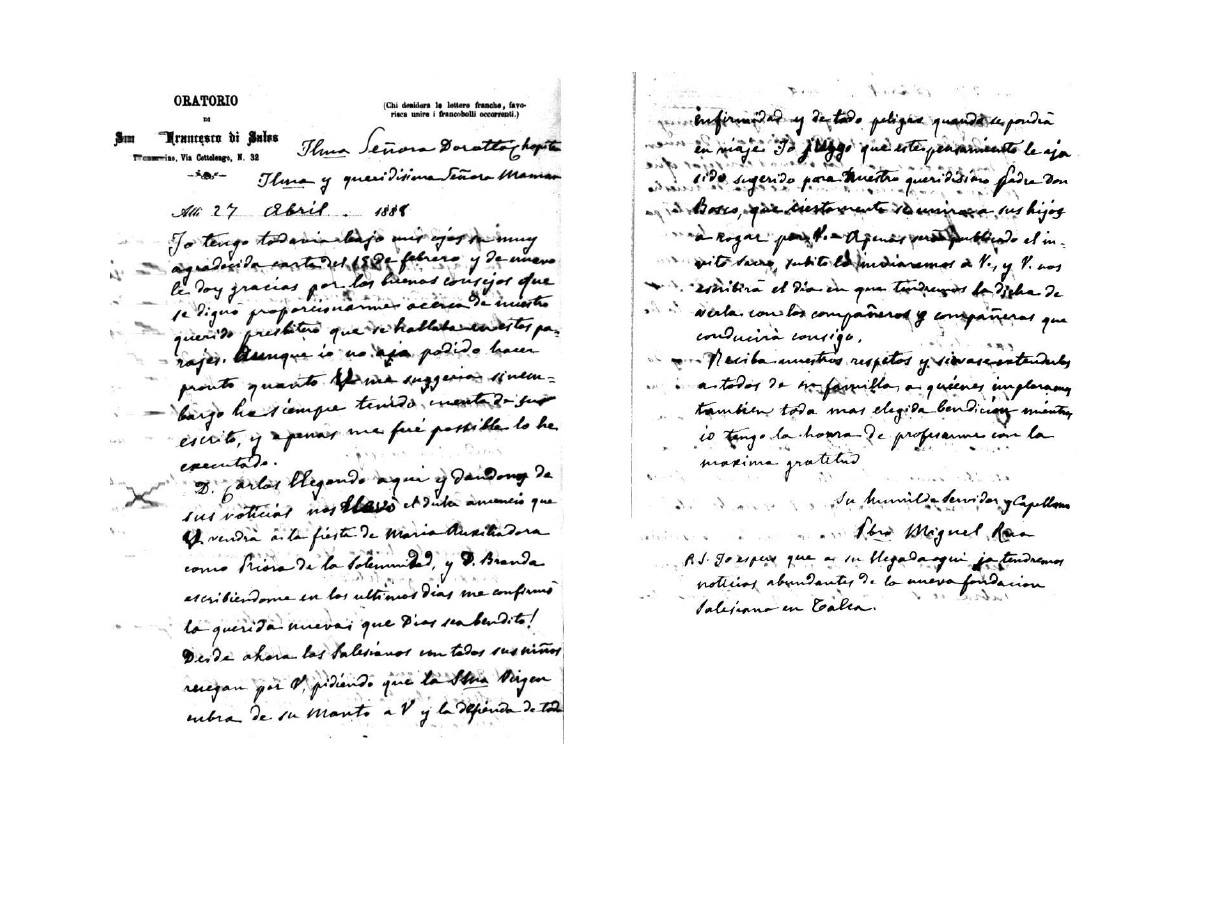 ORATORIO
DI
San Francesco di Sales
Torino, Via Cottolengo, N. 32
(Chi desidera le lettere franche, favo-
risca unire i francobolli occorrenti.)
Ilma Señora Dorotea Chopitea
Ilma y queridísima Señora Maman
Alli 27 Abril 1888
Io tengo todavia bajo mis ojos su muy
agradecida carta del 15 de febrero y de nuevo
le doy gracias por los buenos consejos que
se dignó proporcionarme acerca de nuestro
querido presbitero que se hallaba en estos pa-
rajes. Aunque io no aja podido hacer
pronto quanto V. me suggeria sinem-
bargo he siempre tenido cuenta de sus
escrito, y apenas me fué possible lo he
executado.
D. Carlos llegando aqui y dandonos de
sus noticias nos llevó el dulce anuncio que
V. vendrá a la fiesta de Maria Auxiliadora
como Priora de la Solemnidad, y D. Branda
escribiendome en los ultimos dias me confirmó
la querida nueva; que Dios sea bendito!
Desde ahora los Salesianos con todos sus niños
ruegan por V. pidiendo que la Sma Virgen
cubra de su Manto a V y la defienda de toda
enfirmedad y de todo peligro quando se pondrá
en viaje. Io juzgo que este pensamiento le aja
sido sugerido para nuestro queridisimo Padre Don
Bosco, que ciertamente se unirá a sus hijos
a rogar por V. Apenas será publicado el in-
vito sacro, subito lo inviaremos a V., y V. nos
escribirá el dia en que tendremos la dicha de
verla con los compañeros y compañeras que
conducirá consigo.
Reciba nuestros respetos y sirvase estenderlos
a todos de su familla, a quienes imploramos
tambien toda mas elegida bendicion mientras
io tengo la honra de profesarme con la
maxima gratitud
Su humilde Servidor y Capellano
Pbro Miguel Rua
P.S. Io espero que a su llegada aqui ja tendremos
noticias abundantes de la nueva fondacion
Salesiana en Talca.